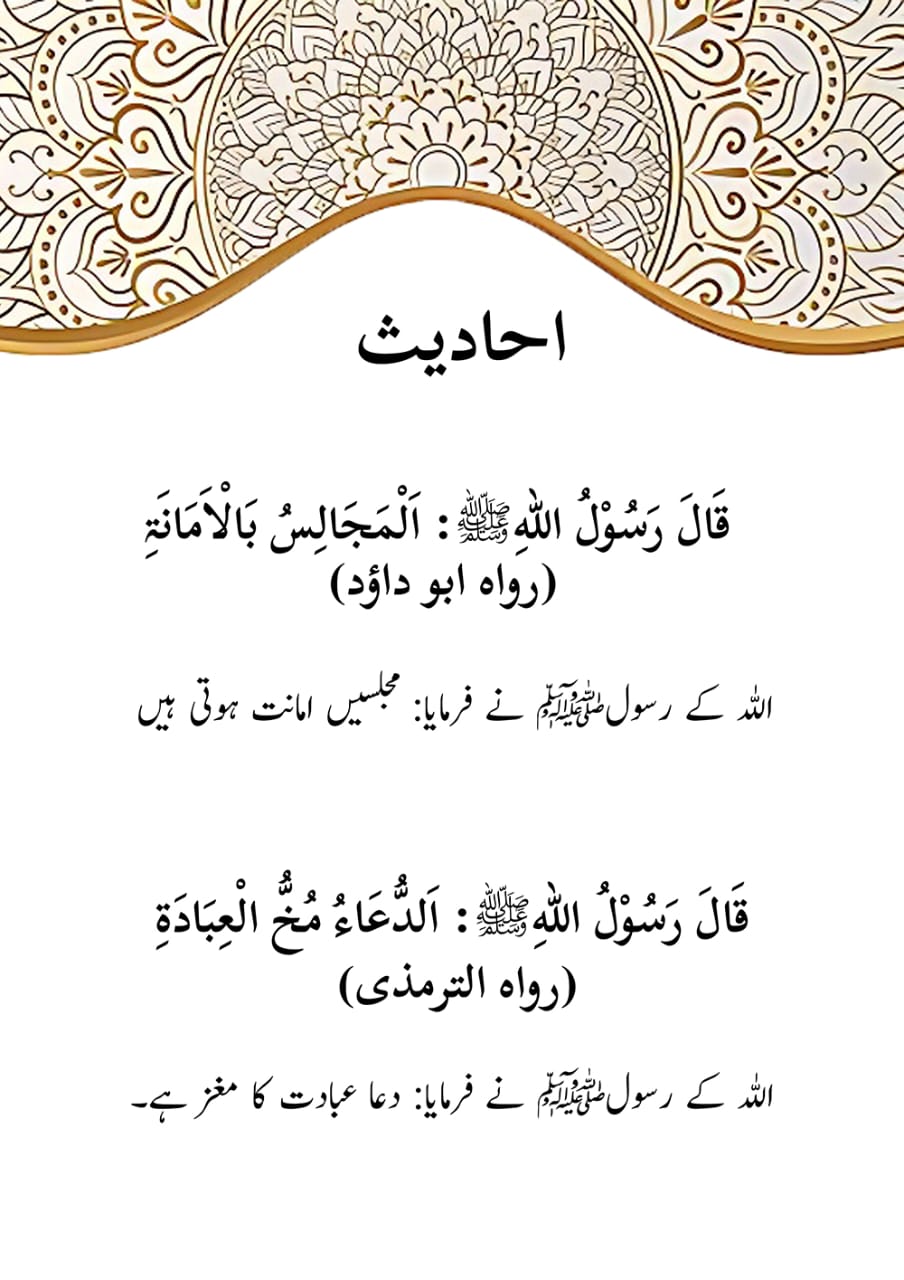 احادیث
قَالَ رَسُوْلُ اللهِ ﷺ : اَلْمَجَالِسُ بَالْاَمَانَۃِ
(رواہ ابو داؤد)
اللہ کے رسول ﷺ نے فرمایا: مجلسیں امانت ہوتی ہیں
قَالَ رَسُوْلُ اللهِ ﷺ : اَلدُّعَاءُ مُخُّ الْعِبَادَةِ
(رواہ الترمذی)
اللہ کے رسول ﷺ نے فرمایا: دعا عبادت کا مغز ہے۔